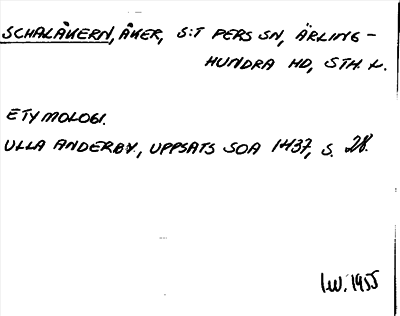 SCHALÅKERN, ÅKER, S:T PERS SN, ÄRLING-
HUNDRA HD, STH. L.
ETYMOLOGI.
ULLA ANDERBY, UPPSATS SOA 1437, S. 28.
I.W. 1955